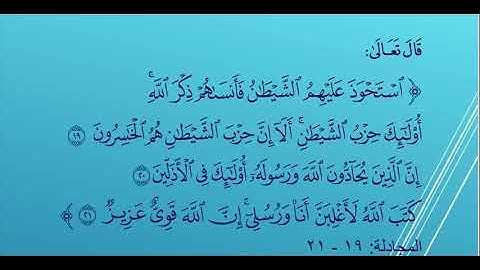 قَالَ تَعَالَىٰ:
﴿ ٱسْتَحْوَذَ عَلَيْهِمُ ٱلشَّيْطَـٰنُ فَأَنسَىٰهُمْ ذِكْرَ ٱللَّهِۚ
أُو۟لَـٰٓئِكَ حِزْبُ ٱلشَّيْطَـٰنِۚ أَلَآ إِنَّ حِزْبَ ٱلشَّيْطَـٰنِ هُمُ ٱلْخَـٰسِرُونَ ١٩
إِنَّ ٱلَّذِينَ يُحَآدُّونَ ٱللَّهَ وَرَسُولَهُۥٓ أُو۟لَـٰٓئِكَ فِى ٱلْأَذَلِّينَ ٢٠
كَتَبَ ٱللَّهُ لَأَغْلِبَنَّ أَنَا۠ وَرُسُلِىٓۚ إِنَّ ٱللَّهَ قَوِىٌّ عَزِيزٌ ٢١ ﴾
المجادلة: ١٩ - ٢١